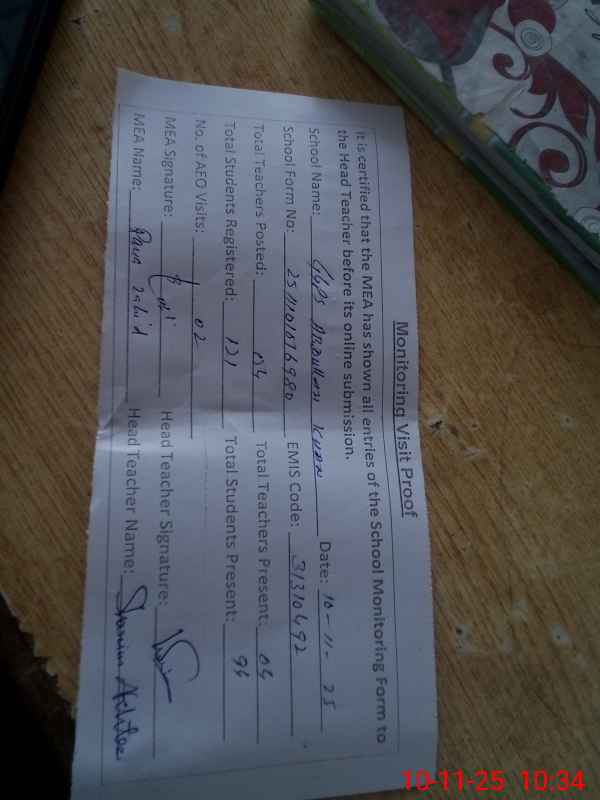 Monitoring Visit Proof
It is certified that the MEA has shown all entries of the School Monitoring Form to
the Head Teacher before its online submission.
School Name: GGPS Abdullah Khan Date: 10-11-25
School Form No: EMIS Code: 31310492
Total Teachers Posted: 04 Total Teachers Present: 04
Total Students Registered: 121 Total Students Present: 96
No. of AEO Visits: 02
MEA Signature: Head Teacher Signature:
MEA Name: Zahid Head Teacher Name:
10-11-25 10:34